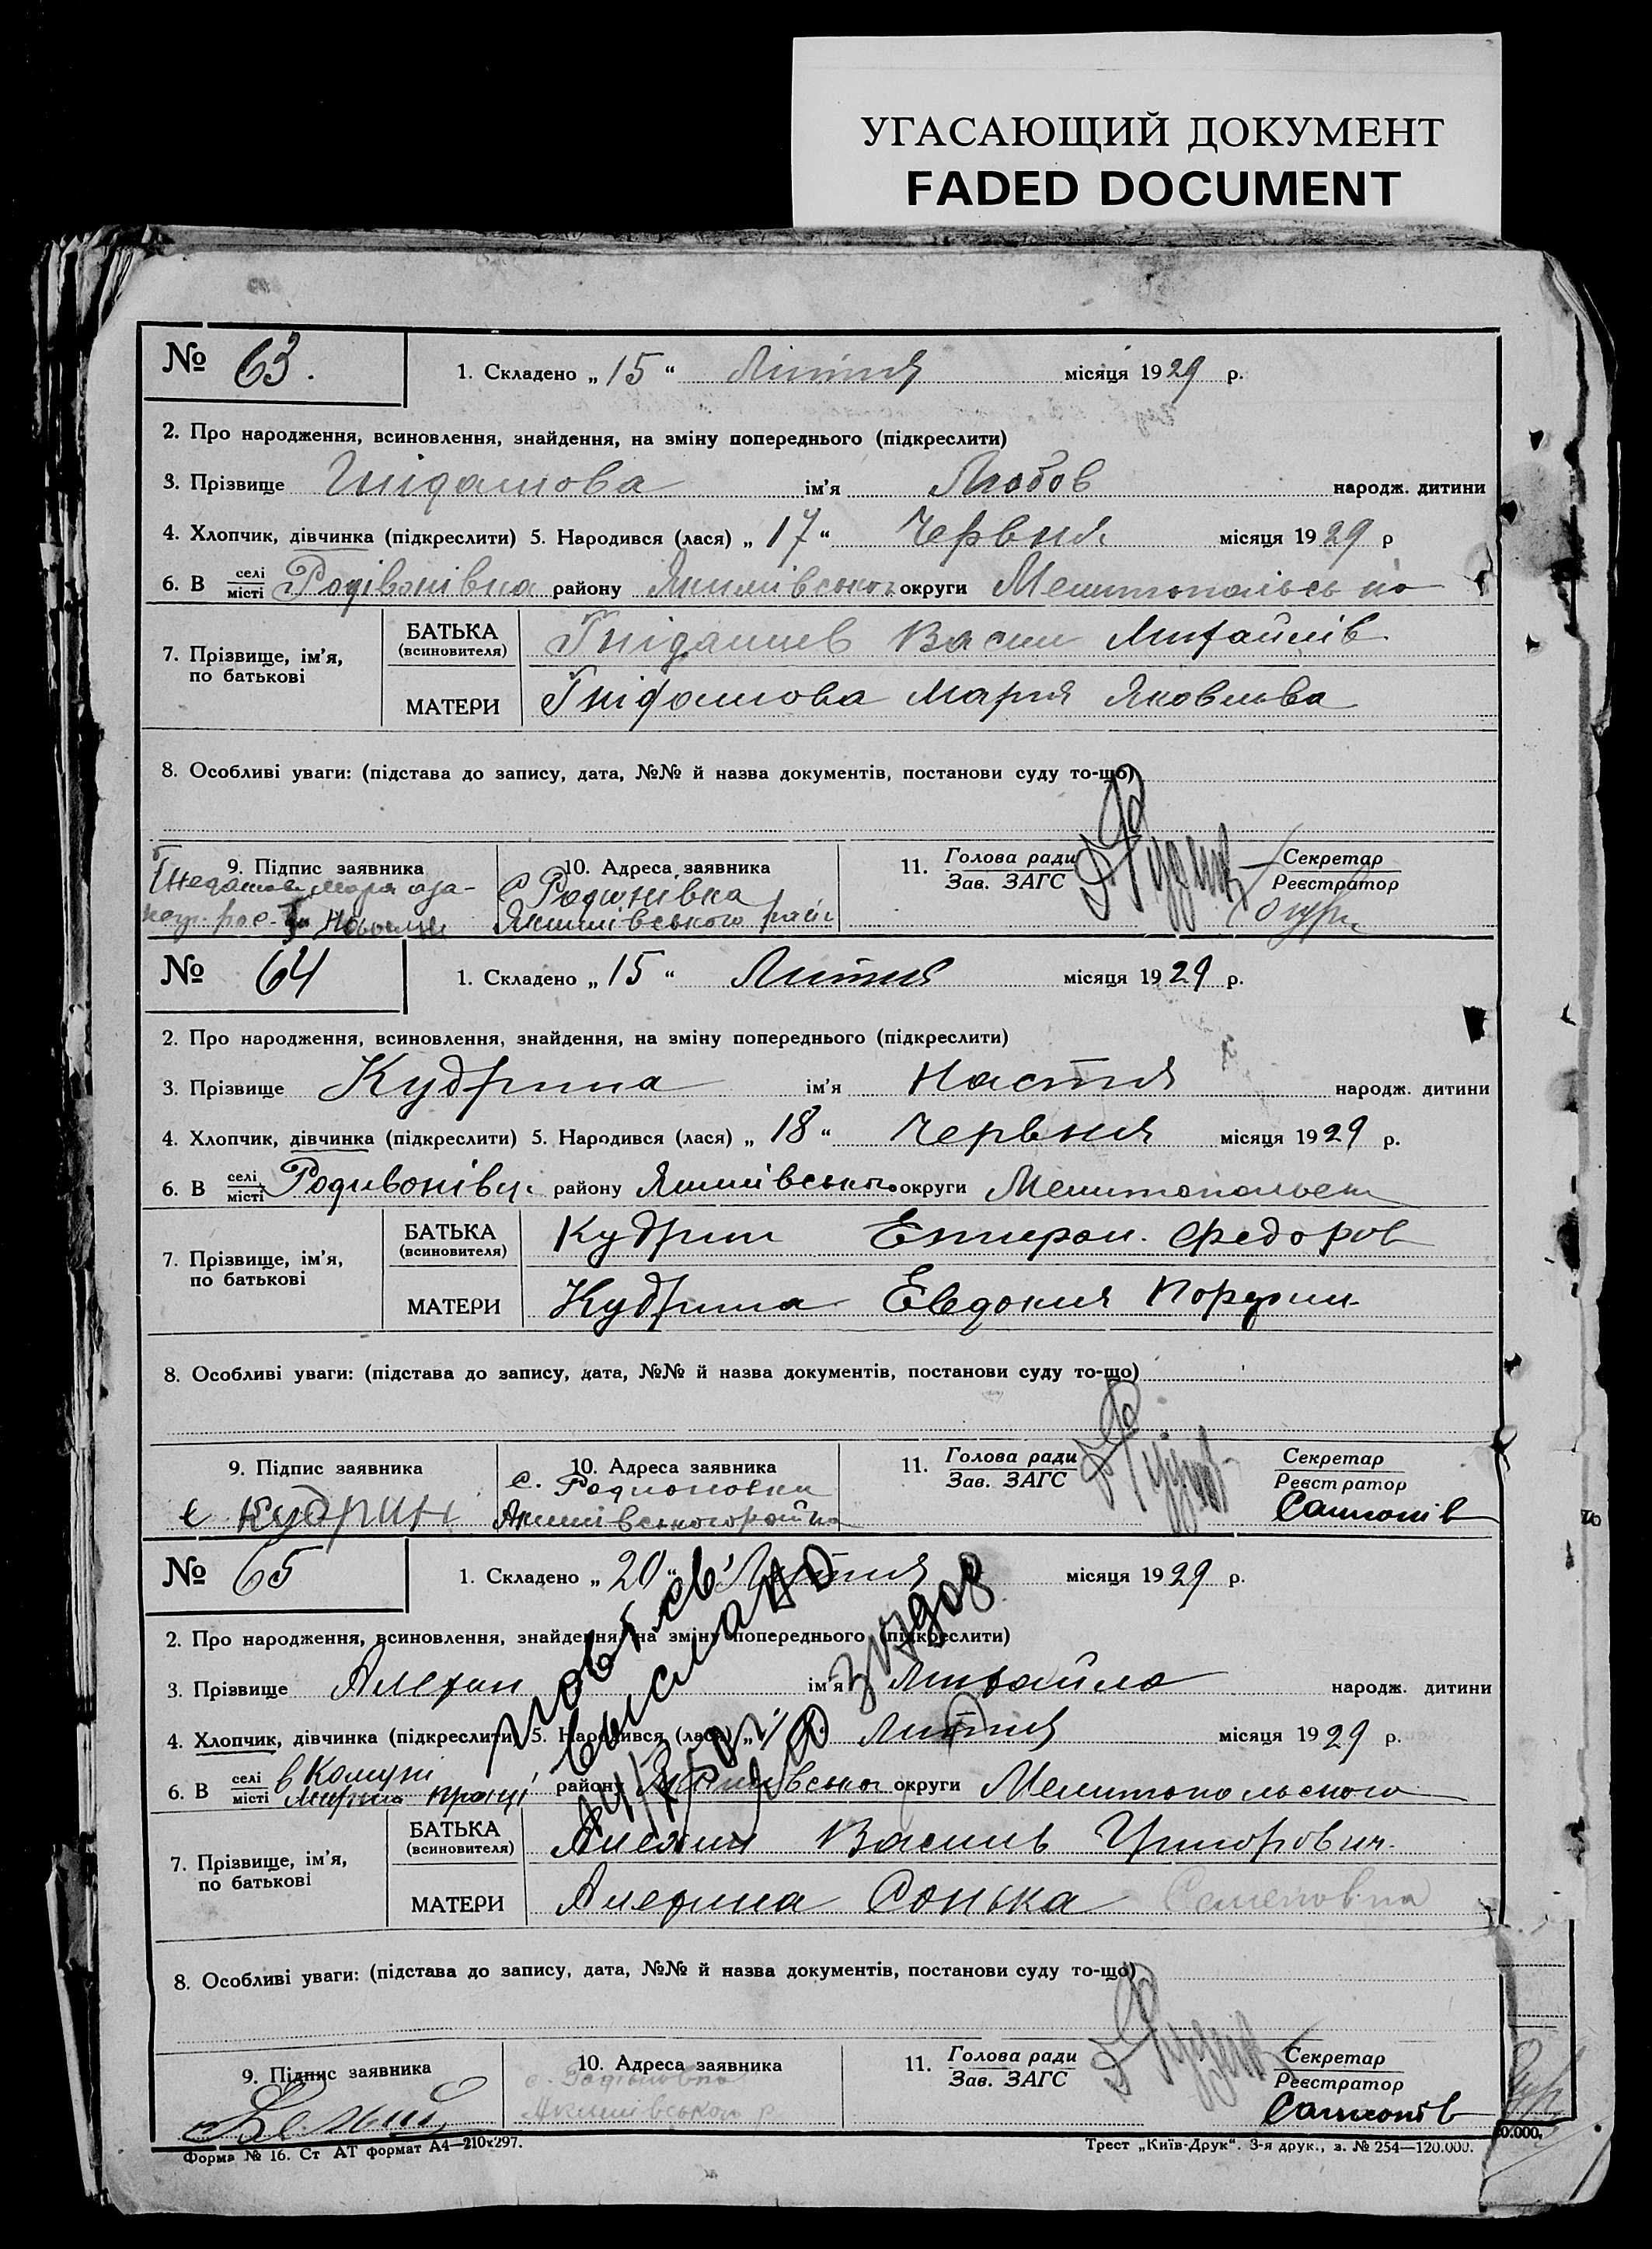 УГАСАЮЩИЙ ДОКУМЕНТ
FADED DOCUMENT
№ 63.
1. Складено „ 15 “ Липня місяця 1929 р.
2. Про народження, всиновлення, знайдення, на зміну попереднього (підкреслити)
3. Прізвище Гнідашова ім'я Любов народж. дитини
4. Хлопчик, дівчинка (підкреслити) 5. Народився (лася) „ 17 “ Червня місяця 1929 р
6. В селі місті Родівонівка району Якимівського округи Мелитопольсько
7. Прізвище, ім'я, по батькові
БАТЬКА (всиновителя) Гнідашев Васил Михайлів
МАТЕРИ Гнідашова Мария Яковлева
8. Особливі уваги: (підстава до запису, дата, №№ й назва документів, постанови суду то-що)
9. Підпис заявника
10. Адреса заявника
с Родионівка
Якимівського рай
11. Голова ради
Зав. ЗАГС
Секретар
Реєстратор
№ 64
1. Складено „ 15 “ Липня місяця 1929 р.
2. Про народження, всиновлення, знайдення, на зміну попереднього (підкреслити)
3. Прізвище Кудрина ім'я Настя народж. дитини
4. Хлопчик, дівчинка (підкреслити) 5. Народився (лася) „ 18 “ Червня місяця 1929 р.
6. В селі місті Родивонівц району Якимівського округи Мелитопольск
7. Прізвище, ім'я, по батькові
БАТЬКА (всиновителя) Кудрин Федоров
МАТЕРИ Кудрина Евдокия
8. Особливі уваги: (підстава до запису, дата, №№ й назва документів, постанови суду то-що)
9. Підпис заявника
Є Кудрин
10. Адреса заявника
с. Родионовка
Якимівського района
11. Голова ради
Зав. ЗАГС
Секретар
Реєстратор
Самсонів
№ 65
1. Складено „ 20 “ Липня місяця 1929 р.
2. Про народження, всиновлення, знайдення, на зміну попереднього (підкреслити)
3. Прізвище Алехин ім'я Михайло народж. дитини
4. Хлопчик, дівчинка (підкреслити) 5. Народився (лася) „ Липня місяця 1929 р.
6. В селі місті в Комуні праці району Якимівсько округи Мелитопольского
7. Прізвище, ім'я, по батькові
БАТЬКА (всиновителя) Алехин Василь Григорович
МАТЕРИ Алехина Сонька Семеновна
8. Особливі уваги: (підстава до запису, дата, №№ й назва документів, постанови суду то-що)
9. Підпис заявника
10. Адреса заявника
с. Родионовка
Якимівського р
11. Голова ради
Зав. ЗАГС
Секретар
Реєстратор
Самсонів
Форма № 16. Ст АТ формат А4—210х297.
Трест „Київ-Друк“. 3-я друк., з. № 254—120.000.
0.000.